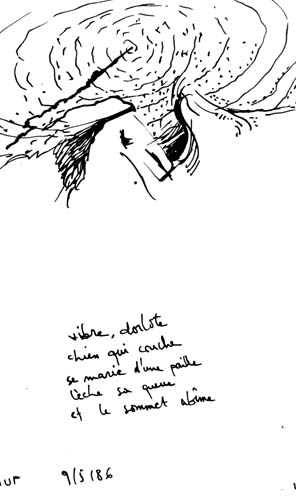 vibre, dorlote
chien qui couche
se marie d'une paille
lèche sa queue
et le sommet abîme
9/5/86